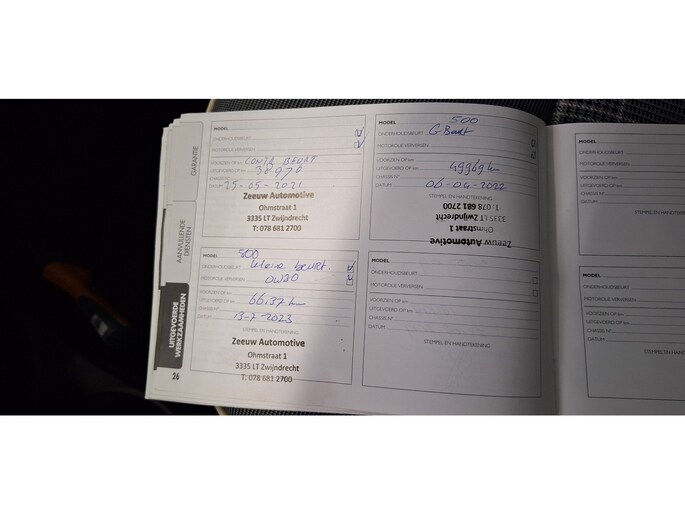 GARANTIE
AANVULLENDE
DIENSTEN
UITGEVOERDE
WERKZAAMHEDEN
26
MODEL
ONDERHOUDSBEURT
MOTOROLIE VERVERSEN
VOORZIEN OP km CONTR BEURT
UITGEVOERD OP km 38970
CHASSIS N°
DATUM 25-05-2021
Zeeuw Automotive
Ohmstraat 1
3335 LT Zwijndrecht
T: 078 681 2700
MODEL 500
ONDERHOUDSBEURT G Beurt
MOTOROLIE VERVERSEN
VOORZIEN OP km
UITGEVOERD OP km 49969 km
CHASSIS N°
DATUM 06-04-2022
STEMPEL EN HANDTEKENING
Zeeuw Automotive
Ohmstraat 1
3335 LT Zwijndrecht
T: 078 681 2700
MODEL 500
ONDERHOUDSBEURT kleine beurt.
MOTOROLIE VERVERSEN OW30
VOORZIEN OP km
UITGEVOERD OP km 66.37 km
CHASSIS N°
DATUM 13-7-2023
STEMPEL EN HANDTEKENING
Zeeuw Automotive
Ohmstraat 1
3335 LT Zwijndrecht
T: 078 681 2700
MODEL
ONDERHOUDSBEURT
MOTOROLIE VERVERSEN
VOORZIEN OP km
UITGEVOERD OP km
CHASSIS N°
DATUM
STEMPEL EN HANDTEKENING
MODEL
ONDERHOUDSBEURT
MOTOROLIE VERVERSEN
VOORZIEN OP km
UITGEVOERD OP km
CHASSIS N°
DATUM
MODEL
ONDERHOUDSBEURT
MOTOROLIE VERVERSEN
VOORZIEN OP km
UITGEVOERD OP km
CHASSIS N°
DATUM